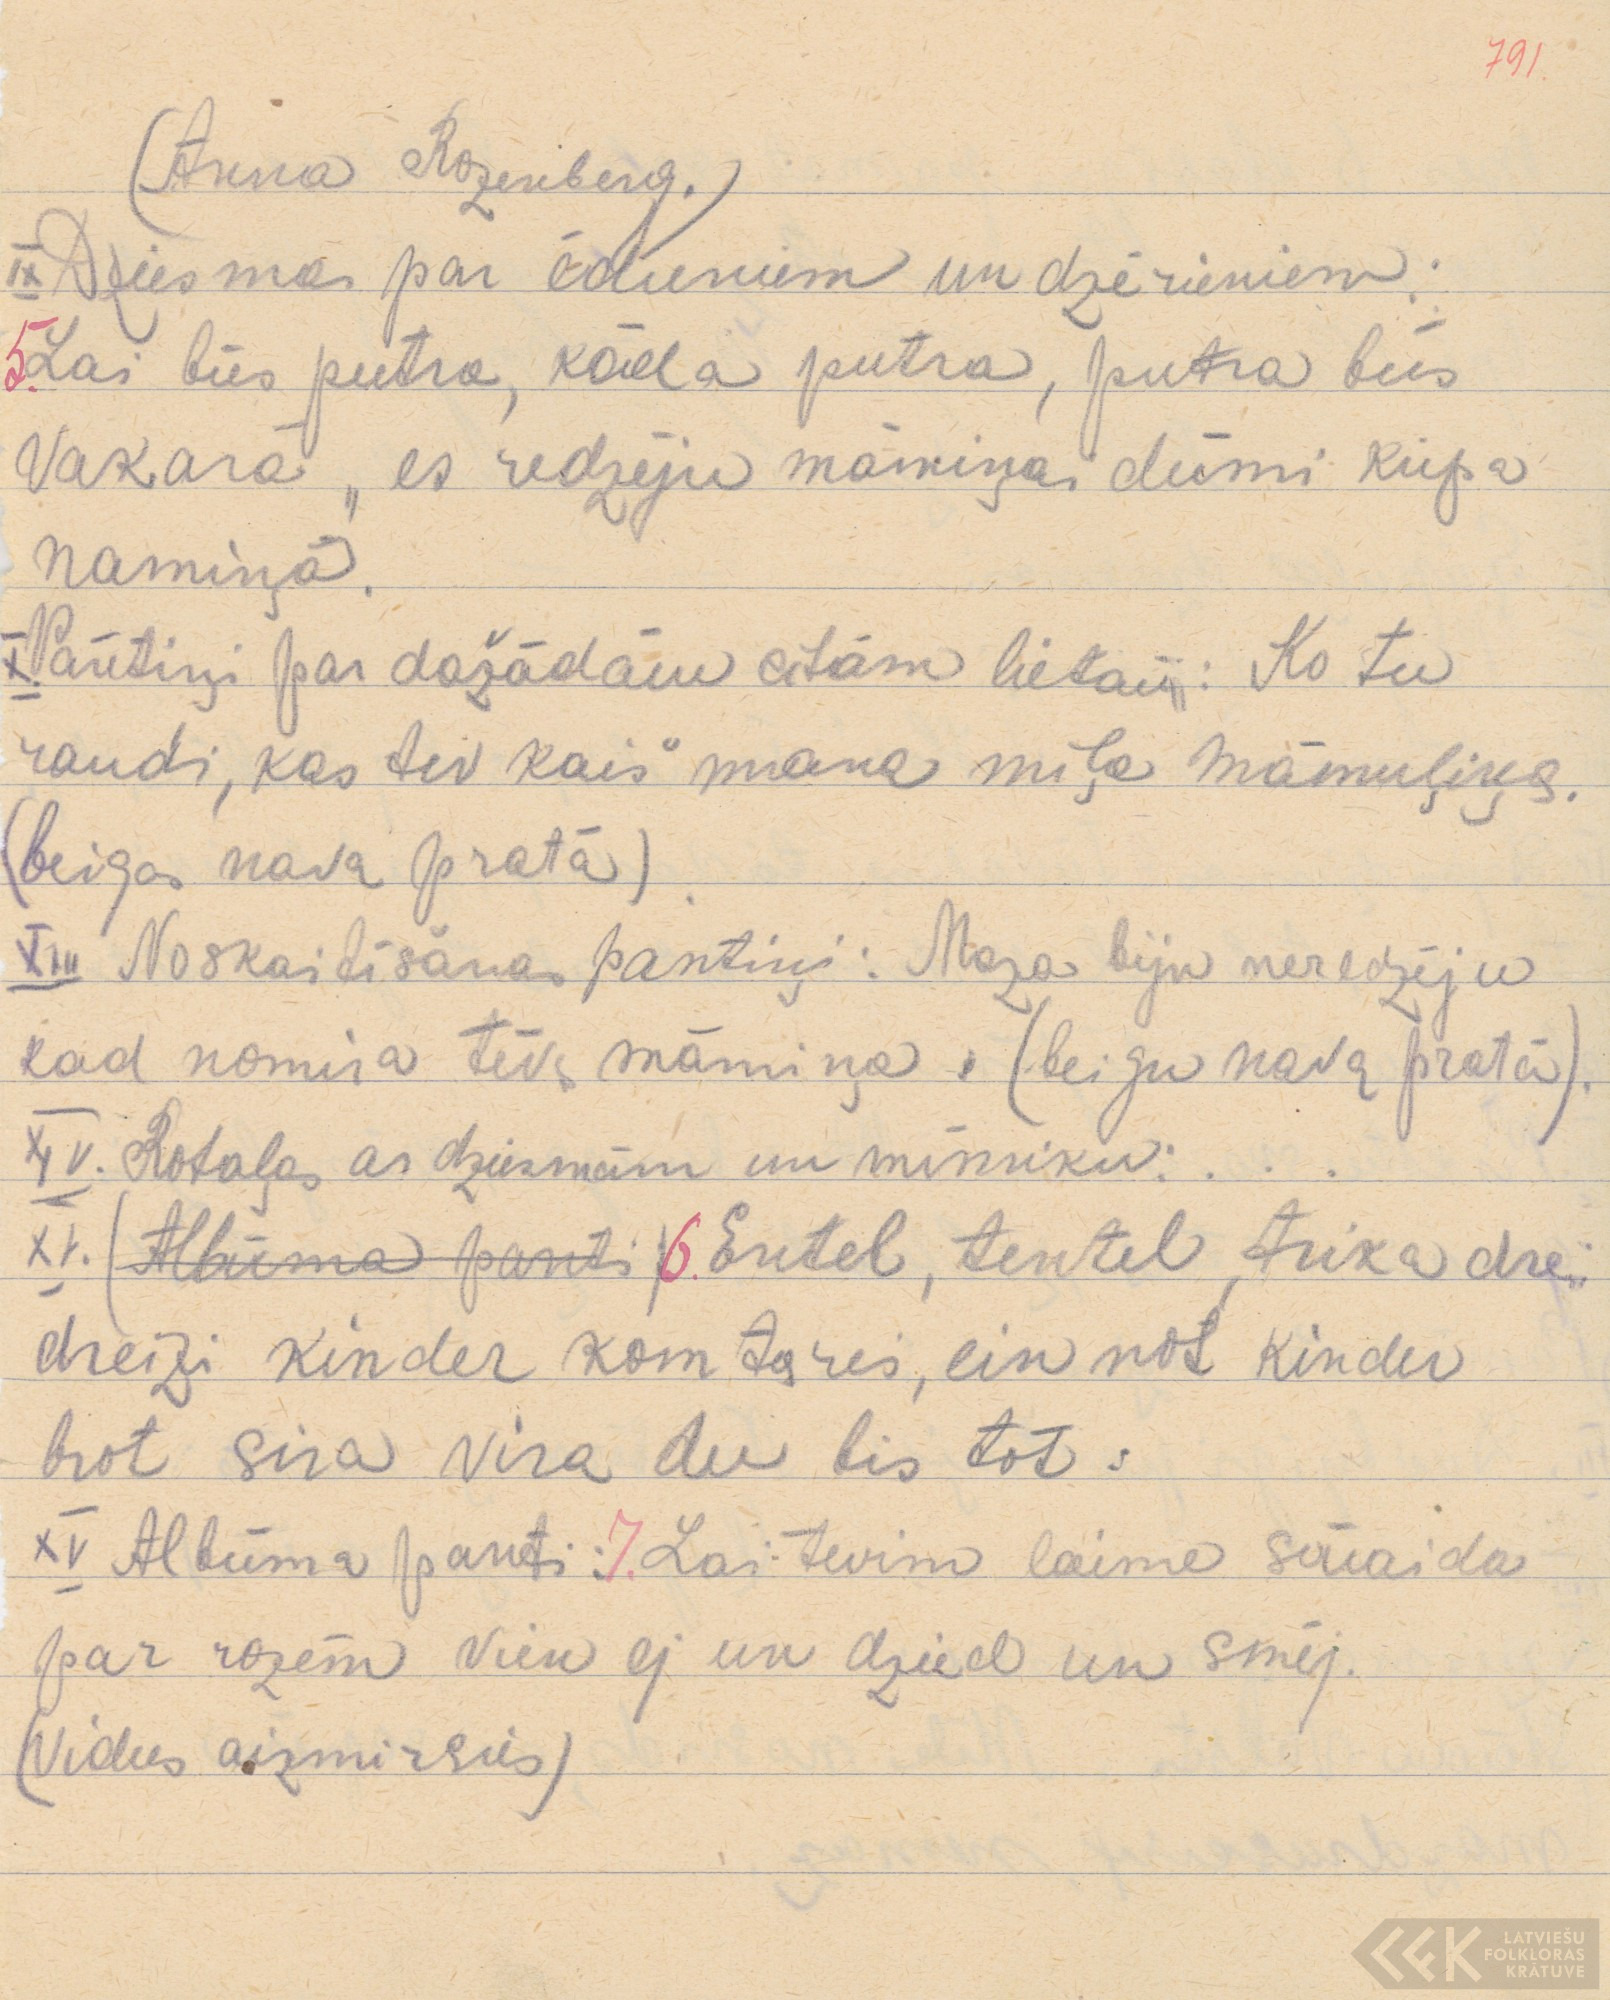 791.
(Anna Rozenberg.)
IX Dziesmas par ēdieniem un dzērieniem:
5. Lai būs putra, kāda putra, putra būs
vakarā „ es redzēju māmiņai dūmi kūpa
namiņā.
X. Pantiņi par dažādām citām lietām: Ko tu
raudi, kas tev kaiš mana mīļa māmuļiņa.
(beigas nava pratā).
XIII Noskaitīšanas pantiņi: Maza biju neredzēju
kad nomira tēvs māmiņa. (beigu nava pratā).
XIV. Rotaļas ar dziesmām un mīmiku: . . .
XV. (Albūma panti) 6. Entel, tentel, trika drei
dreizi kinder kom tares, ein not kinder
brot sira vira du bis tot.
XV Albūma panti: 7. Lai tevim laime smaida
par rozēm vien ej un dzied un smej.
(vidus aizmirsies)
LATVIEŠU
FOLKLORAS
KRĀTUVE